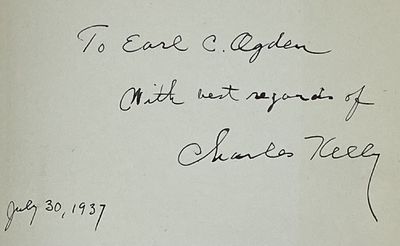 To Earl C. Ogden
With best regards of
Charles Kelly
July 30, 1937